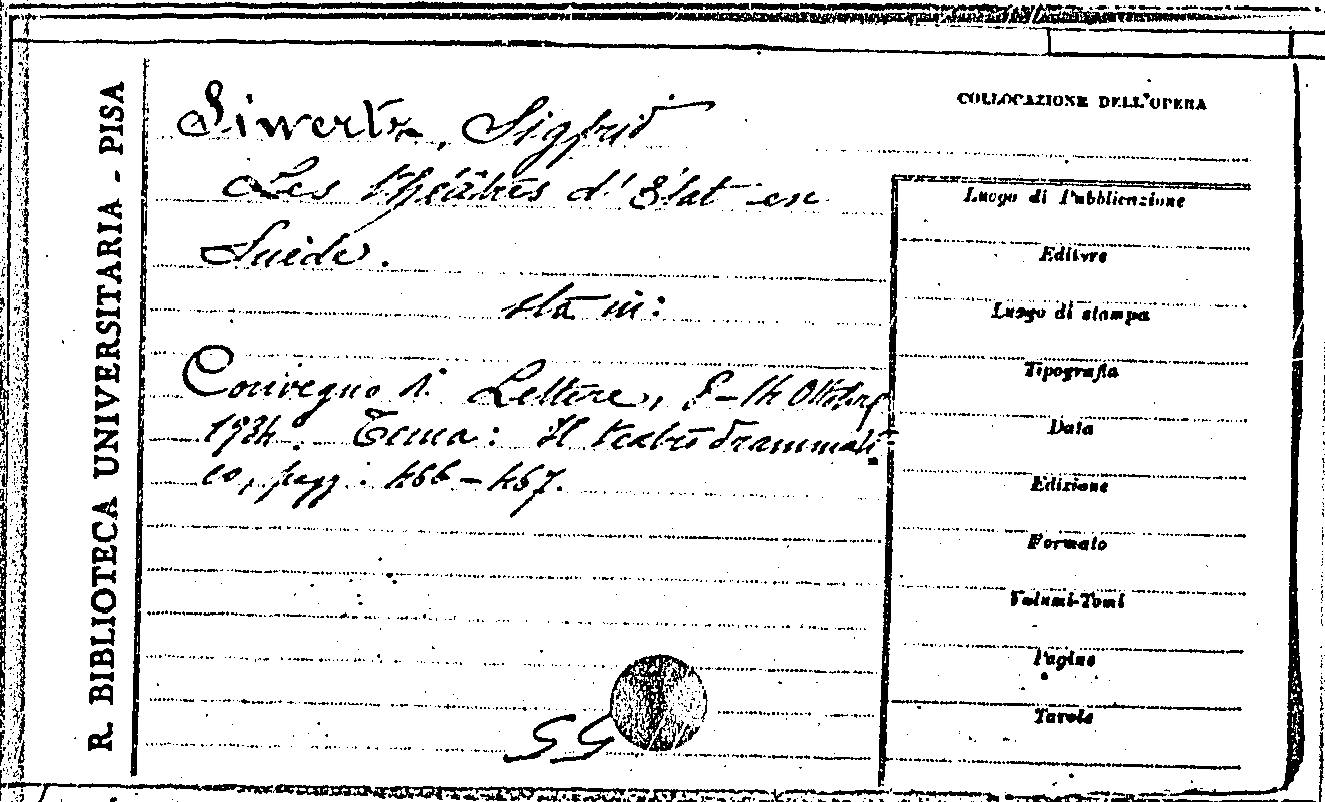 R. BIBLIOTECA UNIVERSITARIA - PISA
Siwertz, Sigfrid
Les théâtres d'État en
Suède.
sta in:
Convegno di Lettere, 8-14 Ottobre
1934. Tema: Il teatro drammati-
co, pagg. 466-467.
SG
COLLOCAZIONE DELL'OPERA
Luogo di Pubblicazione
Editore
Luogo di stampa
Tipografia
Data
Edizione
Formato
Volumi-Tomi
Pagine
Tavole